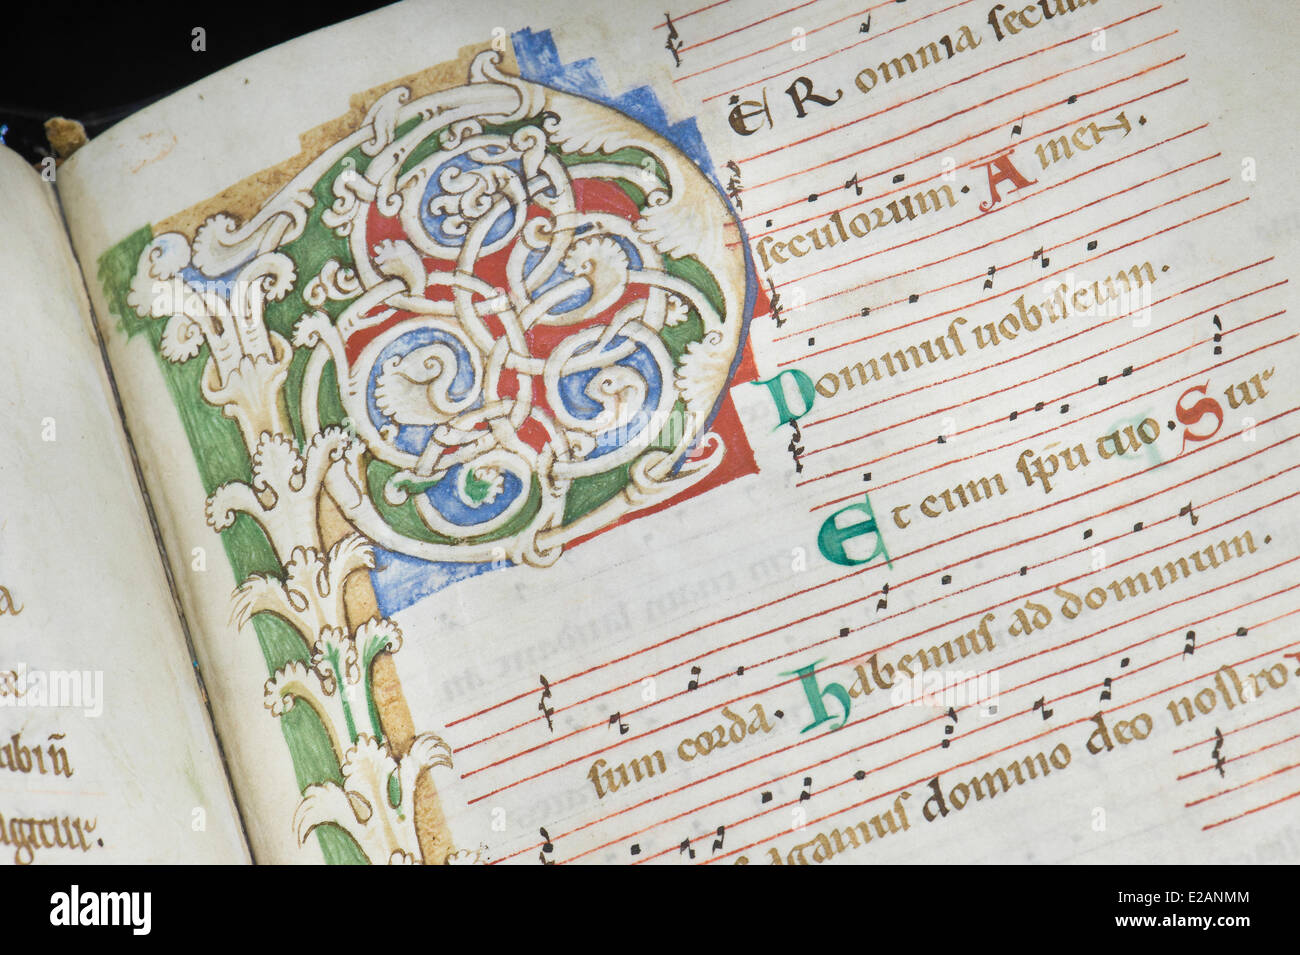 P
ER omnia secula
seculorum. Amen.
Dominus uobiscum.
Et cum spu tuo. Sur
sum corda. habemus ad dominum.
agamus domino deo nostro.
ubin̄
agitur.
a
alamy
E2ANMM
www.alamy.com